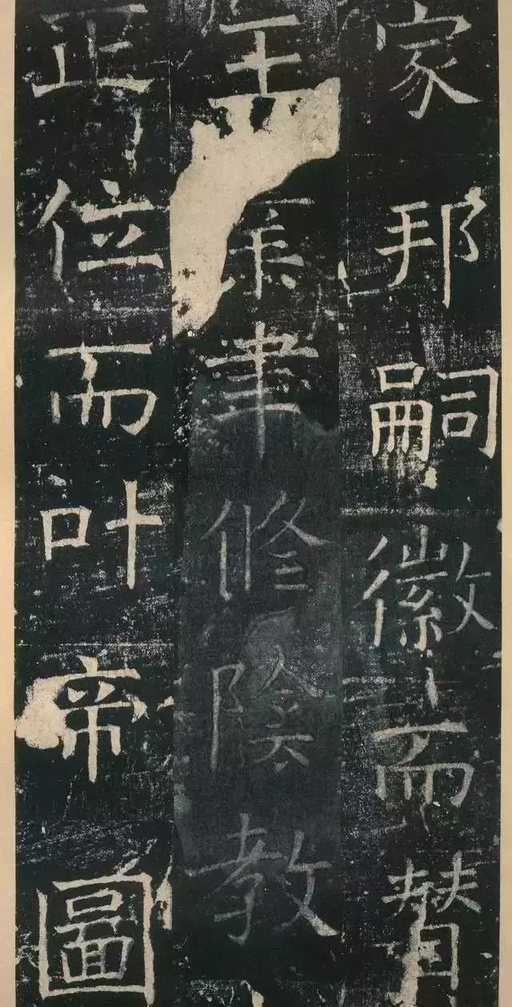 家邦嗣徽而賛
王聿修陰教
正位而叶帝圖